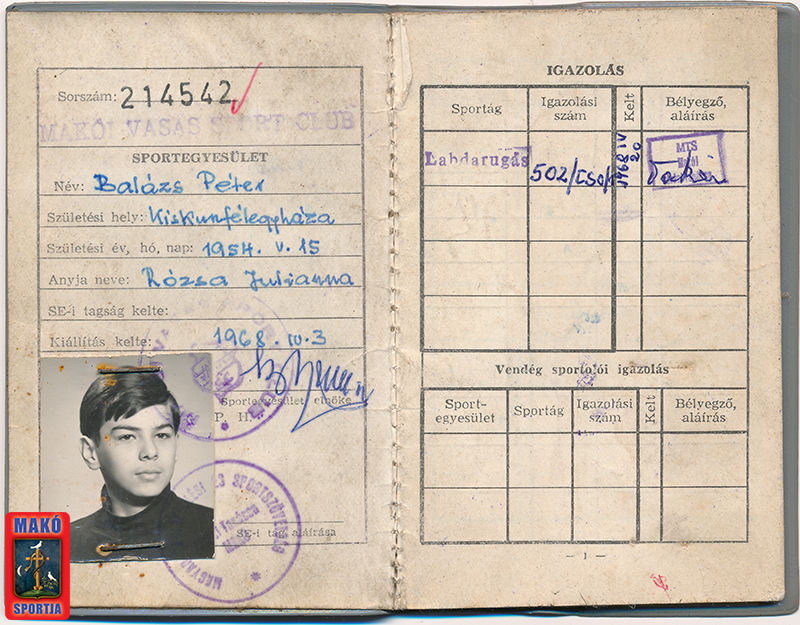 Sorszám: 214542
MAKÓI VASAS SPORT CLUB
SPORTEGYESÜLET
Név: Balázs Péter
Születési hely: Kiskunfélegyháza
Születési év, hó, nap: 1954. V. 15
Anyja neve: Rózsa Julianna
SE-i tagság kelte:
Kiállítás kelte: 1968. IV. 3
Sportegyesület elnöke
P. H.
SE-i tag aláírása
MAKÓ
SPORTJA
IGAZOLÁS
Sportág Igazolási szám Kelt Bélyegző, aláírás
Labdarugás 502/Cson 1968 IV 20 MTS
Vendég sportolói igazolás
Sport-egyesület Sportág Igazolási szám Kelt Bélyegző, aláírás
— 1 —